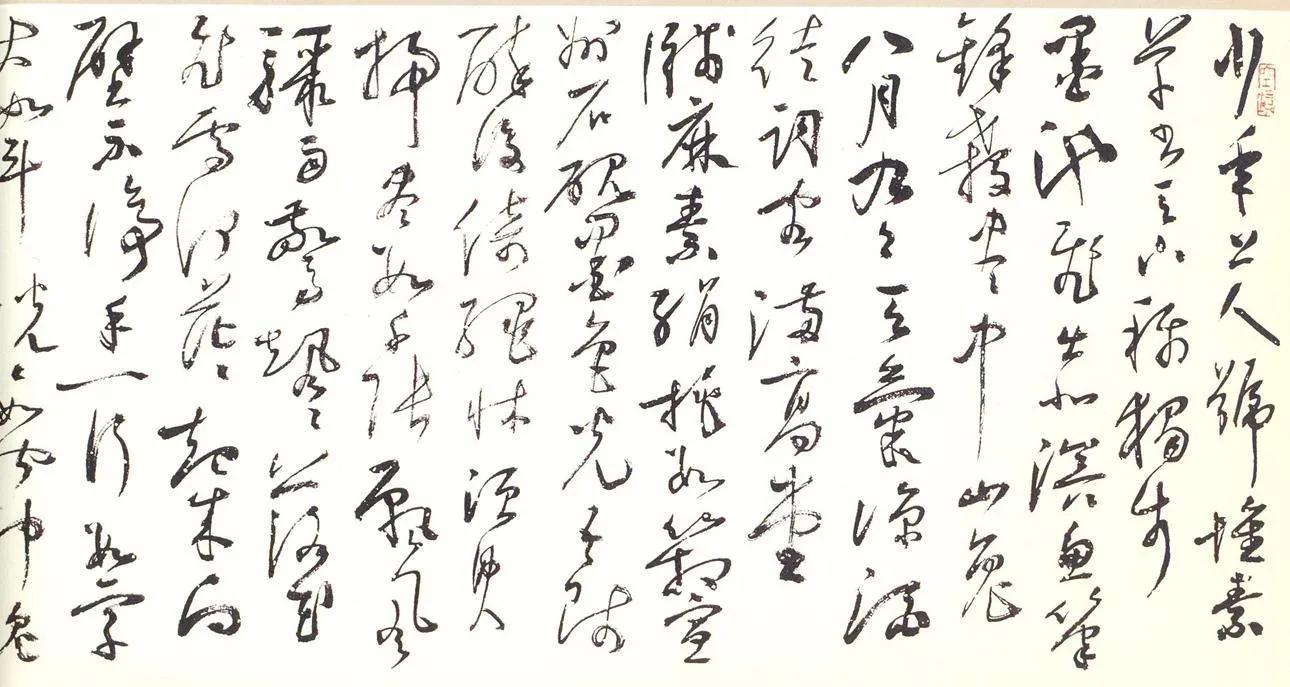 少年上人號懷素
草書天下稱獨步
墨池飛出北溟魚筆
鋒殺盡中山兔
八月九月天氣涼酒
徒詞客滿高堂
牋麻素絹排數箱宣
州石硯墨色光吾師
醉後倚繩床須臾
掃盡數千張飄風
驟雨驚颯〻落花
飛雪何茫〻起來向
壁不停手一行數字
大如斗恍〻如聞神鬼